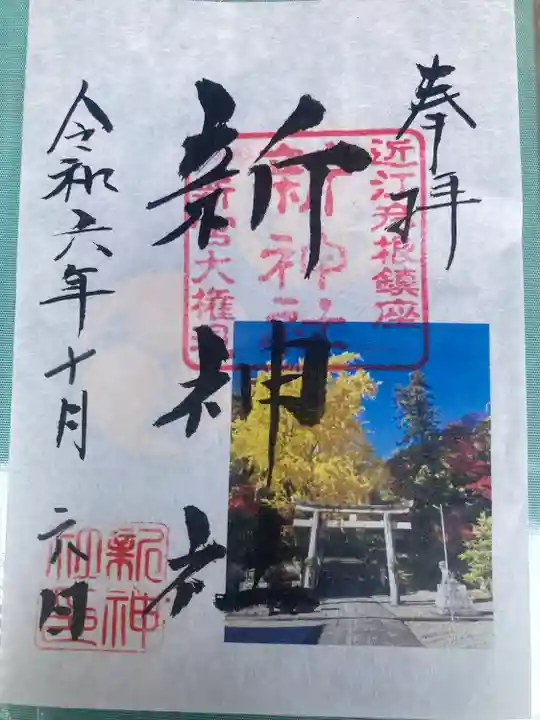 奉拝
近江彦根鎮座
新神社
新宮大権現
新神社
令和六年十月六日
新神